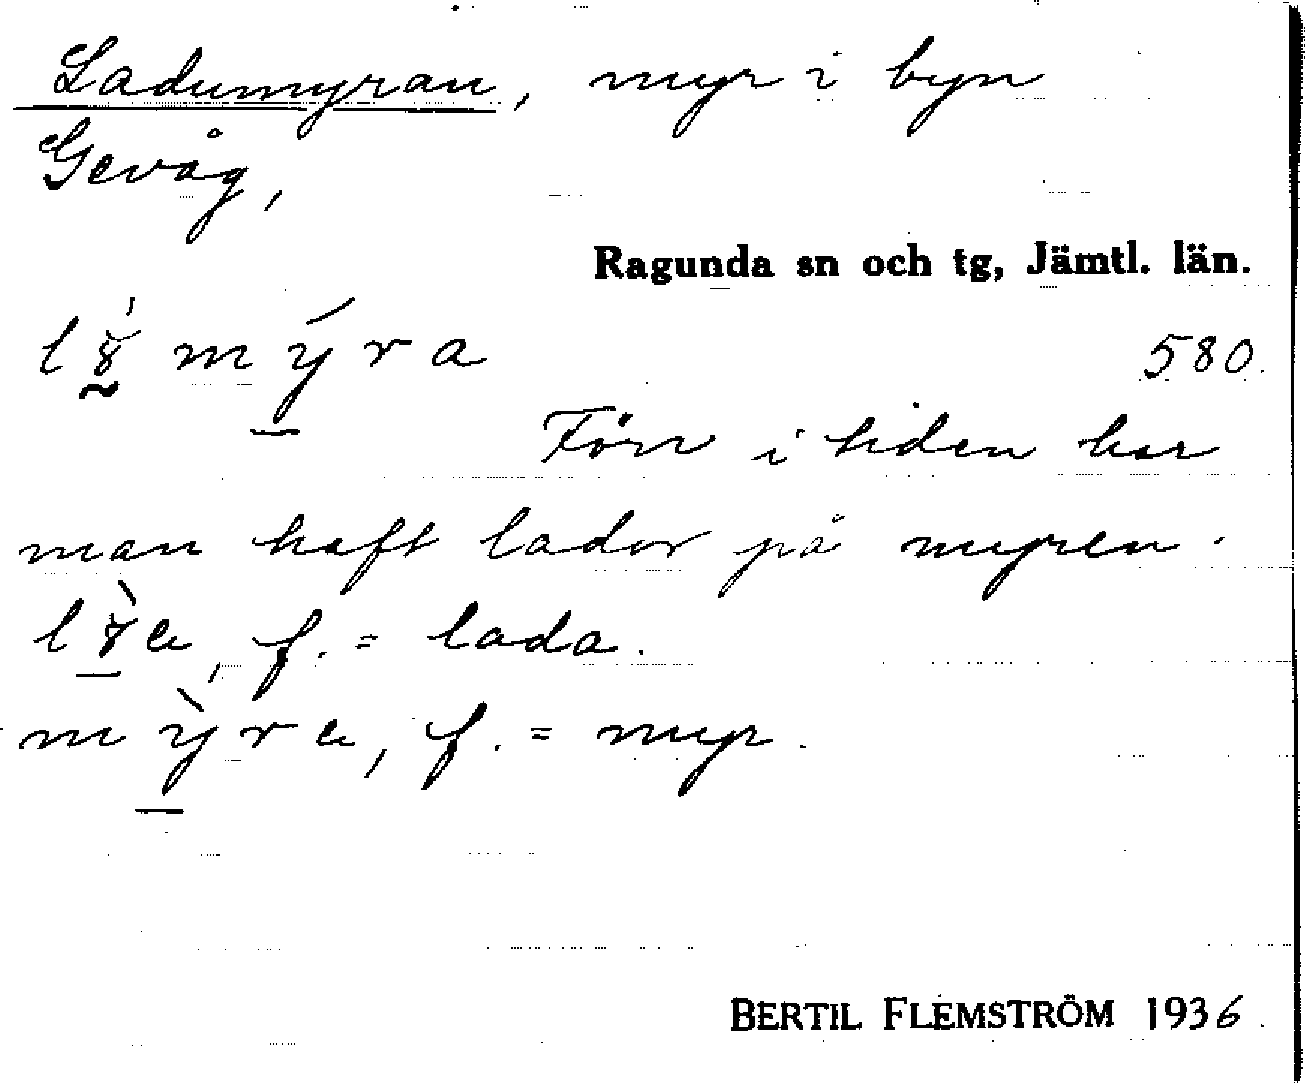 Ladumyran, myr i byn
Gevåg,
Ragunda sn och tg, Jämtl. län.
580.
Förr i tiden har
man haft lador på myren.
f. = lada.
f. = myr.
BERTIL FLEMSTRÖM 1936.